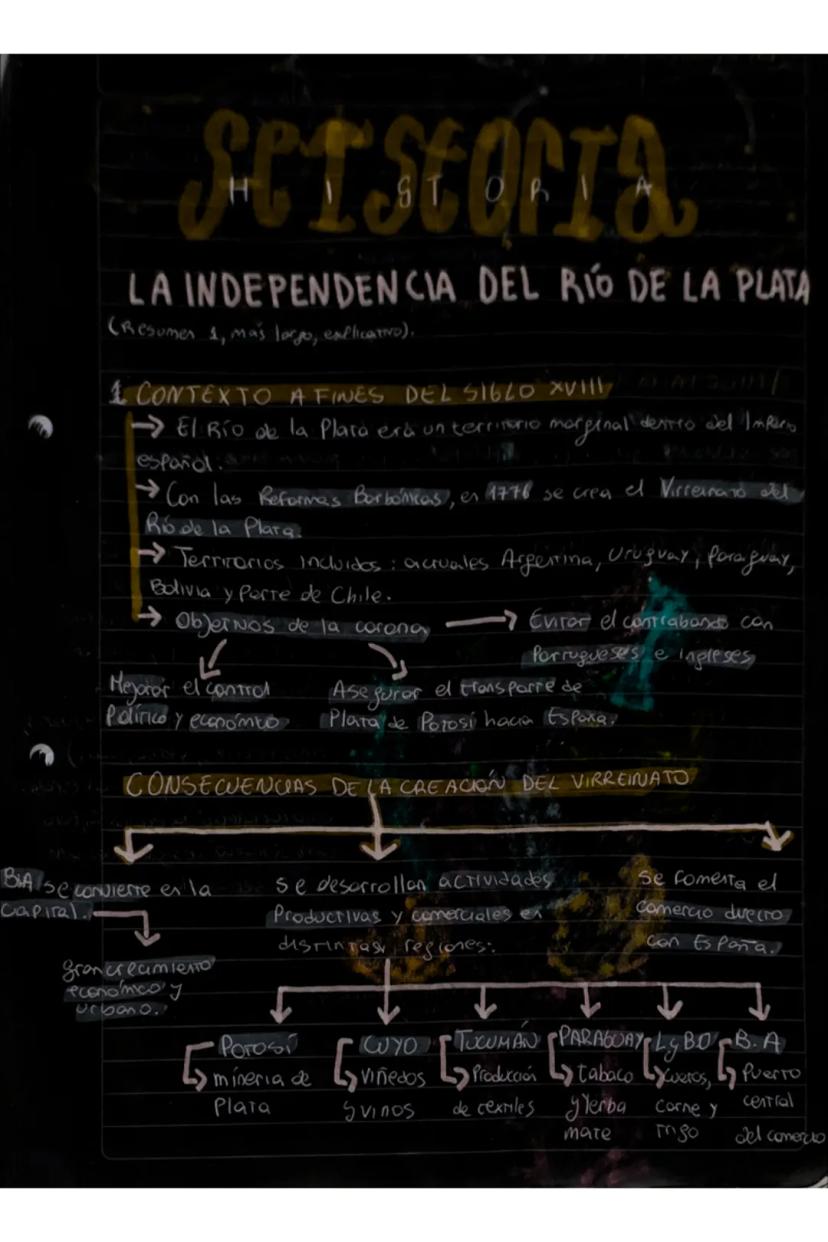 HISTORIA
LA INDEPENDENCIA DEL RÍO DE LA PLATA
(Resumen 1, más largo, explicativo).
1 CONTEXTO A FINES DEL SIGLO XVIII
→ El Río de la Plata era un territorio marginal dentro del Imperio
español.
→ Con las Reformas Borbónicas, en 1776 se crea el Virreinato del
Río de la Plata.
→ Territorios incluidos: actuales Argentina, Uruguay, Paraguay,
Bolivia y parte de Chile.
→ Objetivos de la corona → Evitar el contrabando con
Portugueses e ingleses
Mejorar el control
Político y económico
Asegurar el transporte de
Plata de Potosí hacia España.
CONSECUENCIAS DE LA CREACIÓN DEL VIRREINATO
BsA se convierte en la
capital.
gran crecimiento
económico y
urbano.
se desarrollan actividades
Productivas y comerciales en
distintas regiones:
Se fomenta el
comercio directo
con España.
POTOSÍ
minería de
Plata
CUYO
viñedos
y vinos
TUCUMÁN
Producción
de textiles
PARAGUAY
tabaco
y yerba
mate
L y BO
cueros,
carne y
trigo
B.A
Puerto
central
del comercio